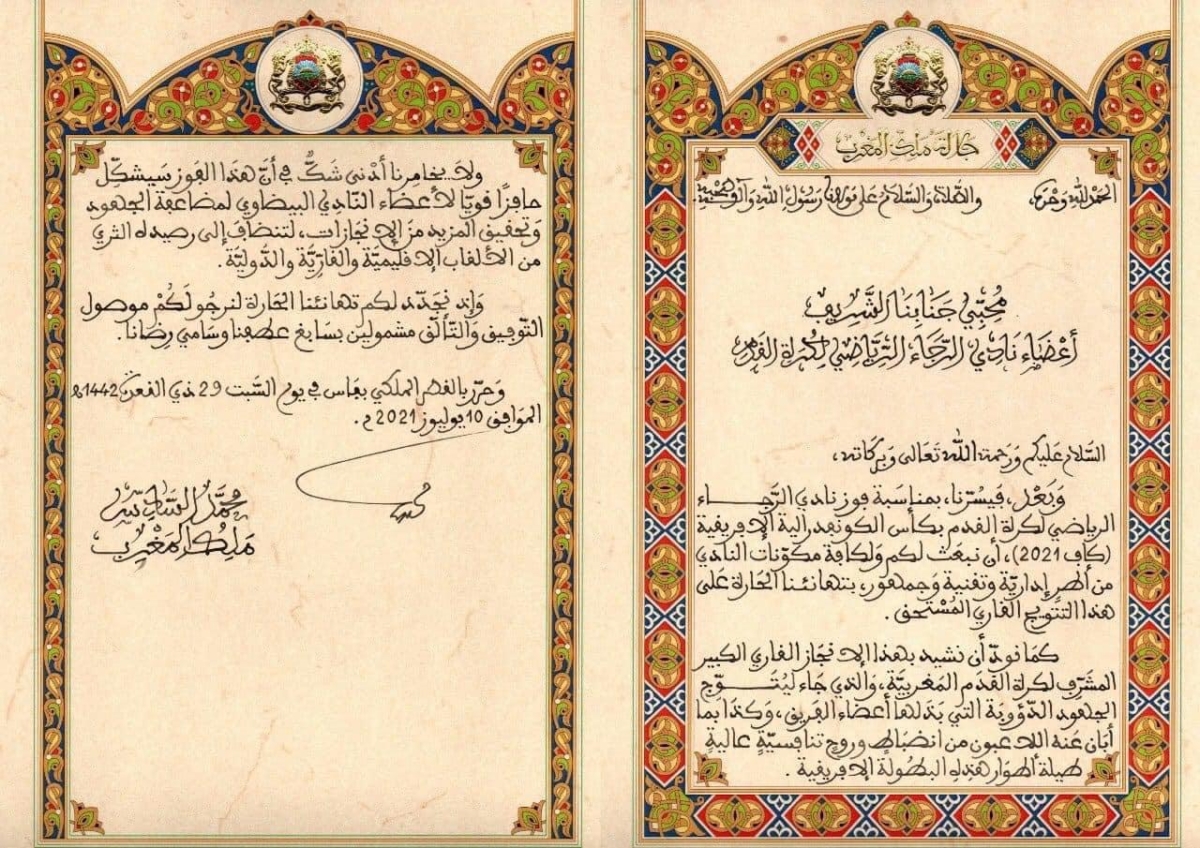 جلالة ملك المغرب
الحمد لله وحده، والصلاة والسلام على مولانا رسول الله وآله وصحبه.
مُحِبِّي جَنَابِنَا الشَّرِيفِ
أَعْضَاءَ نَادِي الرَّجَاءِ الرِّيَاضِي لِكُرَةِ القَدَمِ
السَّلَامُ عَلَيكُم وَرَحمَةُ اللَّهِ تَعَالَى وَبَرَكَاتُه،
وَبَعْدُ، فَيَسُرُّنَا، بمناسبة فوز نادي الرَّجاء
الرياضي لكرة القدم بكأس الكونفدرالية الإفريقية
(كاف 2021)، أن نبعث لكم ولكافة مكوّنات النادي
من أطر إداريّة وتقنية وجمهور، بتهانئنا الحارة على
هذا التَّتويج القاري المُسْتَحق.
كما نودّ أن نشيد بهذا الإنجاز القاري الكبير
المشَرِّف لكرة القدم المَغربيَّة، والذي جاء ليُتَوِّج
الجهود الدّؤوبة التي بذلها أعضاء الفريق، وكذا بما
أبان عنه اللاعبون من انضباط وروح تنافسيّةٍ عاليةٍ
طيلة أطوار هذه البطولة الإفريقية.
ولا يخامرنا أدْنى شَكٍّ في أنّ هذا الفوز سَيشكّل
حافزًا قويًّا لأعضاء النّادي البيضاوي لمضاعفة الجهود
وتحقيق المزيد من الإنجازات، لتنضاف إلى رصيده الثري
من الألقاب الإقليميّة والقارّيّة والدّوليّة.
وإذ نجدّد لكم تهانئنا الحارة لنرجو لَكُمْ موصول
التوفيق والتّألّق مشمولين بسابغ عطفنا وسامي رضانا.
وحرّر بالقصر الملكي بفاس في يوم السّبت 29 ذي القعدة 1442هـ
الموافق 10 يوليوز 2021م.
محمد السادس
ملك المغرب